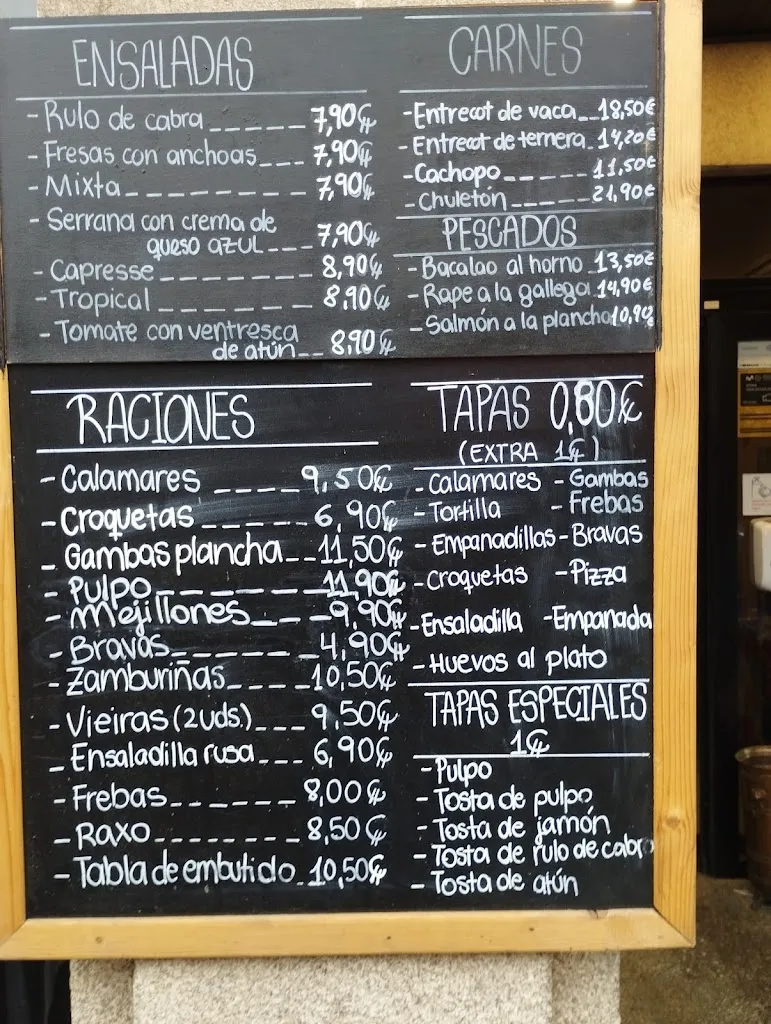 ENSALADAS
- Rulo de cabra ______ 7,90€
- Fresas con anchoas___ 7,90€
- Mixta_________ 7,90€
- Serrana con crema de
queso azul ___ 7,90€
- Capresse ________ 8,90€
- Tropical ________ 8,90€
- Tomate con ventresca
de atún__ 8,90€
CARNES
- Entrecot de vaca__18,50€
- Entrecot de ternera_14,20€
- Cachopo_____11,50€
- Chuletón_____21,90€
PESCADOS
- Bacalao al horno_13,50€
- Rape a la gallega 14,90€
- Salmón a la plancha 10,90€
RACIONES
- Calamares _____9,50€
- Croquetas______ 6,90€
- Gambas plancha__11,50€
- Pulpo_________11,90€
- Mejillones____9,90€
- Bravas_______4,90€
- Zamburiñas____10,50€
- Vieiras (2uds.)___ 9,50€
- Ensaladilla rusa___ 6,90€
- Frebas_______ 8,00€
- Raxo________ 8,50€
- Tabla de embutido_10,50€
TAPAS 0,80€
(EXTRA 1€)
- Calamares - Gambas
- Tortilla - Frebas
- Empanadillas - Bravas
- Croquetas - Pizza
- Ensaladilla - Empanada
- Huevos al plato
TAPAS ESPECIALES
1€
- Pulpo
- Tosta de pulpo
- Tosta de jamón
- Tosta de rulo de cabra
- Tosta de atún